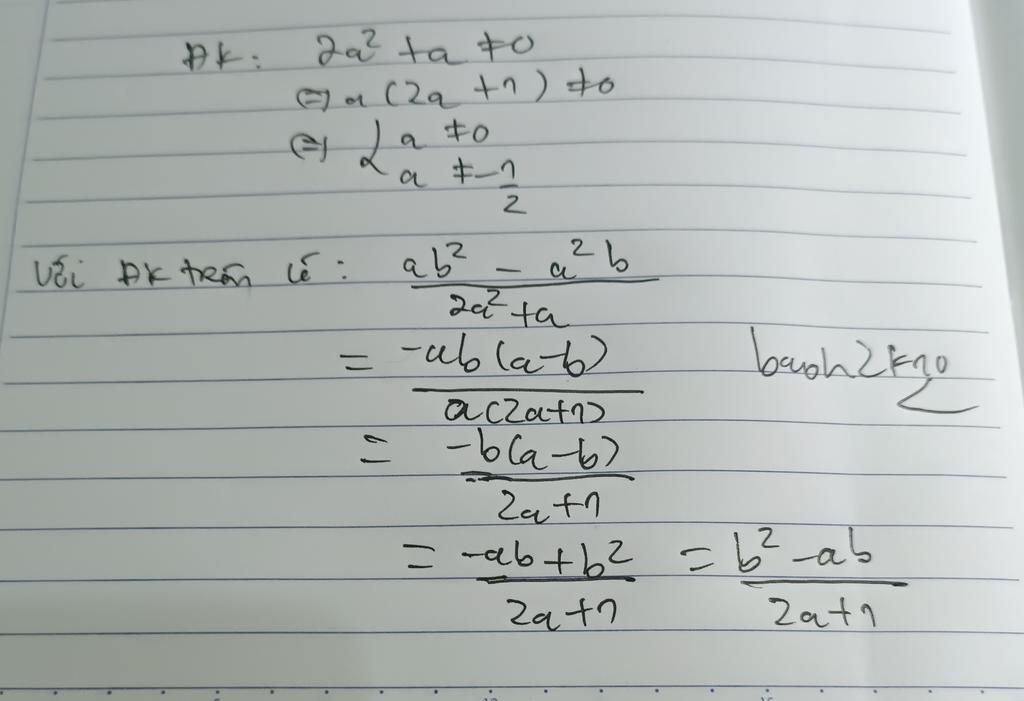 ĐK: 2a² + a ≠ 0
⇔ a (2a + 1) ≠ 0
⇔ { a ≠ 0
a ≠ -1/2
Với ĐK trên có: (ab² - a²b)/(2a² + a)
= (-ab(a-b))/(a(2a+1))
baoh2k10
= (-b(a-b))/(2a+1)
= (-ab + b²)/(2a+1) = (b² - ab)/(2a+1)